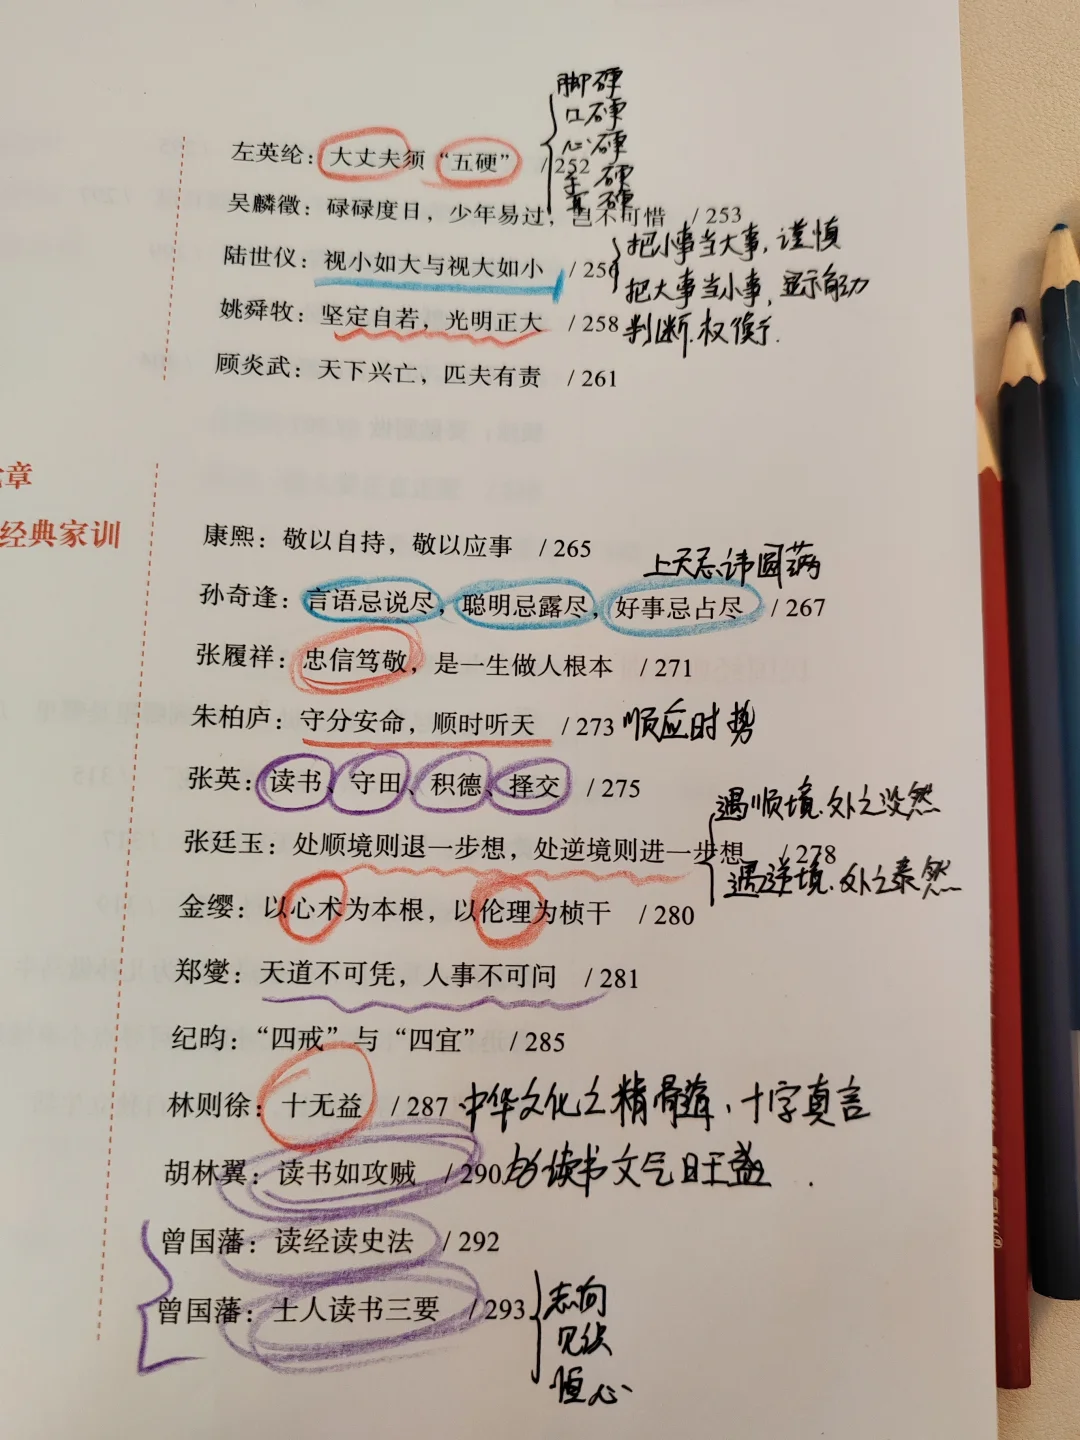 脚硬
口硬
心硬
手硬
耳硬
左英纶：大丈夫须“五硬” /252
吴麟徵：碌碌度日，少年易过，岂不可惜 /253
把小事当大事，谨慎
陆世仪：视小如大与视大如小 /256
把大事当小事，显示能力
姚舜牧：坚定自若，光明正大 /258
判断.权衡.
顾炎武：天下兴亡，匹夫有责 /261
章
经典家训
康熙：敬以自持，敬以应事 /265
上天忌讳圆满
孙奇逢：言语忌说尽，聪明忌露尽，好事忌占尽 /267
张履祥：忠信笃敬，是一生做人根本 /271
朱柏庐：守分安命，顺时听天 /273 顺应时势
张英：读书、守田、积德、择交 /275
遇顺境.处之淡然
张廷玉：处顺境则退一步想，处逆境则进一步想 /278
遇逆境.处之泰然
金缨：以心术为本根，以伦理为桢干 /280
郑燮：天道不可凭，人事不可问 /281
纪昀：“四戒”与“四宜” /285
林则徐：十无益 /287 中华文化之精骨髓、十字真言
胡林翼：读书如攻贼 /290 读书文气日旺盛.
曾国藩：读经读史法 /292
曾国藩：士人读书三要 /293
志向
见识
恒心